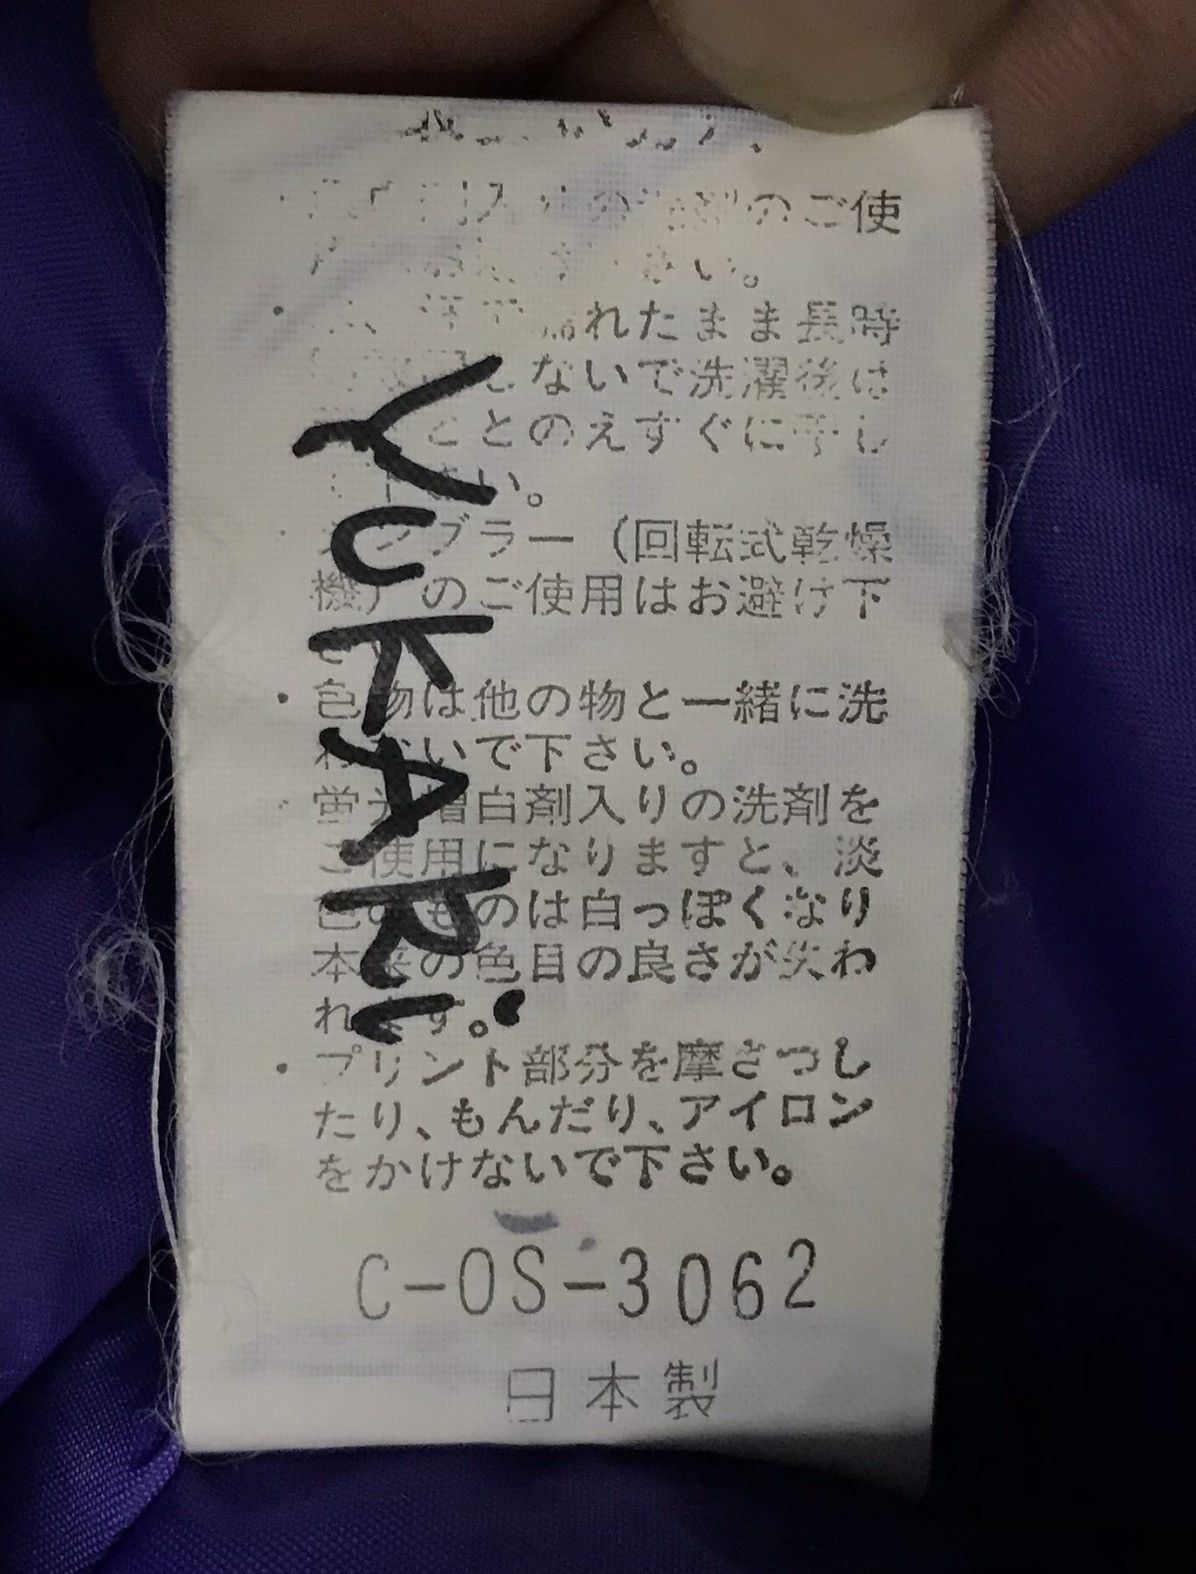 のご使
さい。
れたまま長時
しないで洗濯後は
ととのえすぐに干し
下さい。
タンブラー(回転式乾燥
機)のご使用はお避け下
さい。
・色物は他の物と一緒に洗
わないで下さい。
・蛍光増白剤入りの洗剤を
ご使用になりますと、淡
色のものは白っぽくなり
本来の色目の良さが失わ
れます。
・プリント部分を摩さつし
たり、もんだり、アイロン
をかけないで下さい。
C-OS-3062
日本製
YUKARi